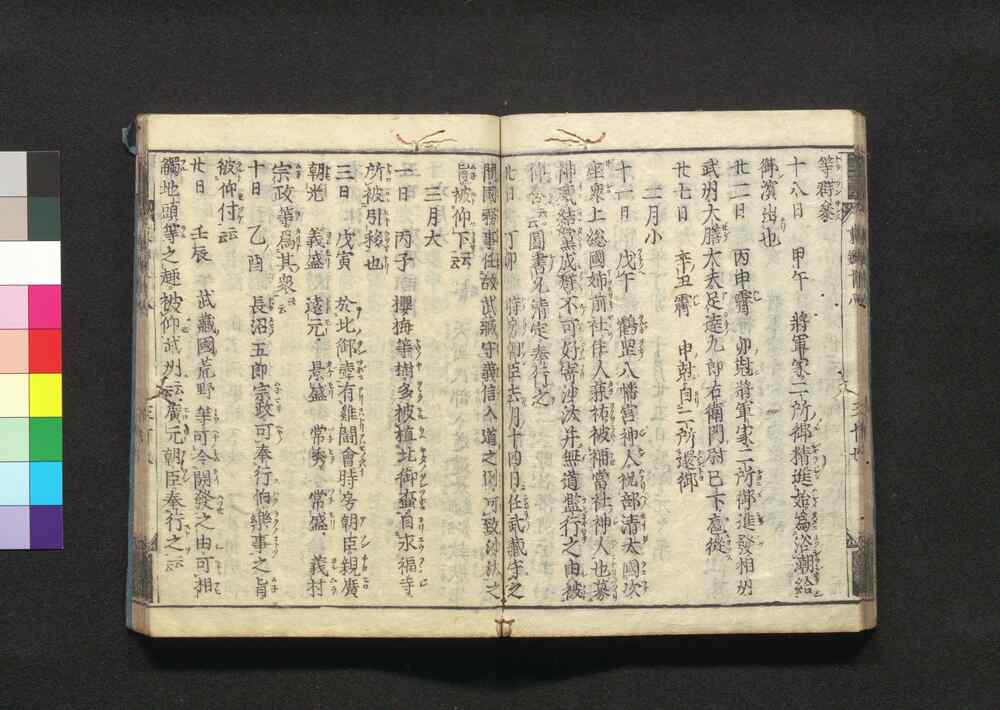 等群參
十八日　甲午　將軍家二所御精進始爲浴潮給
御濱出也
廿二日　丙申霽　卯尅將軍家二所御進發相州
武州大膳大夫足逵九郎右衛門尉已下扈從
廿七日　辛丑霽　申尅自二所還御
二月小
十一日　戊午　鶴岳八幡宮神人祝部清太國次
座衆上総國姉前社住人兼祐被補當社神人也募
神威結黨成群不可好寄沙汰并無道監行之由被
仰含云云圖書允清定奉行之
廿日　丁卯　時房朝臣去月十四日任武藏守之
間國務事任故武藏守義信入道之例可致沙汰之
旨被仰下云云
三月大
一日　丙子　櫻梅等樹多被植北御壺自永福寺
所被引移也
三日　戊寅　於北御壺有雞闘會時房朝臣親廣
朝光　義盛　遠元　景盛　常秀　常盛　義村
宗政等爲其衆云云
十日　乙酉　長沼五郎宗政可奉行伯樂事之旨
被仰付云云
廿日　壬辰　武藏國荒野等可令開發之由可相
觸地頭等之趣被仰武州云云廣元朝臣奉行之云云